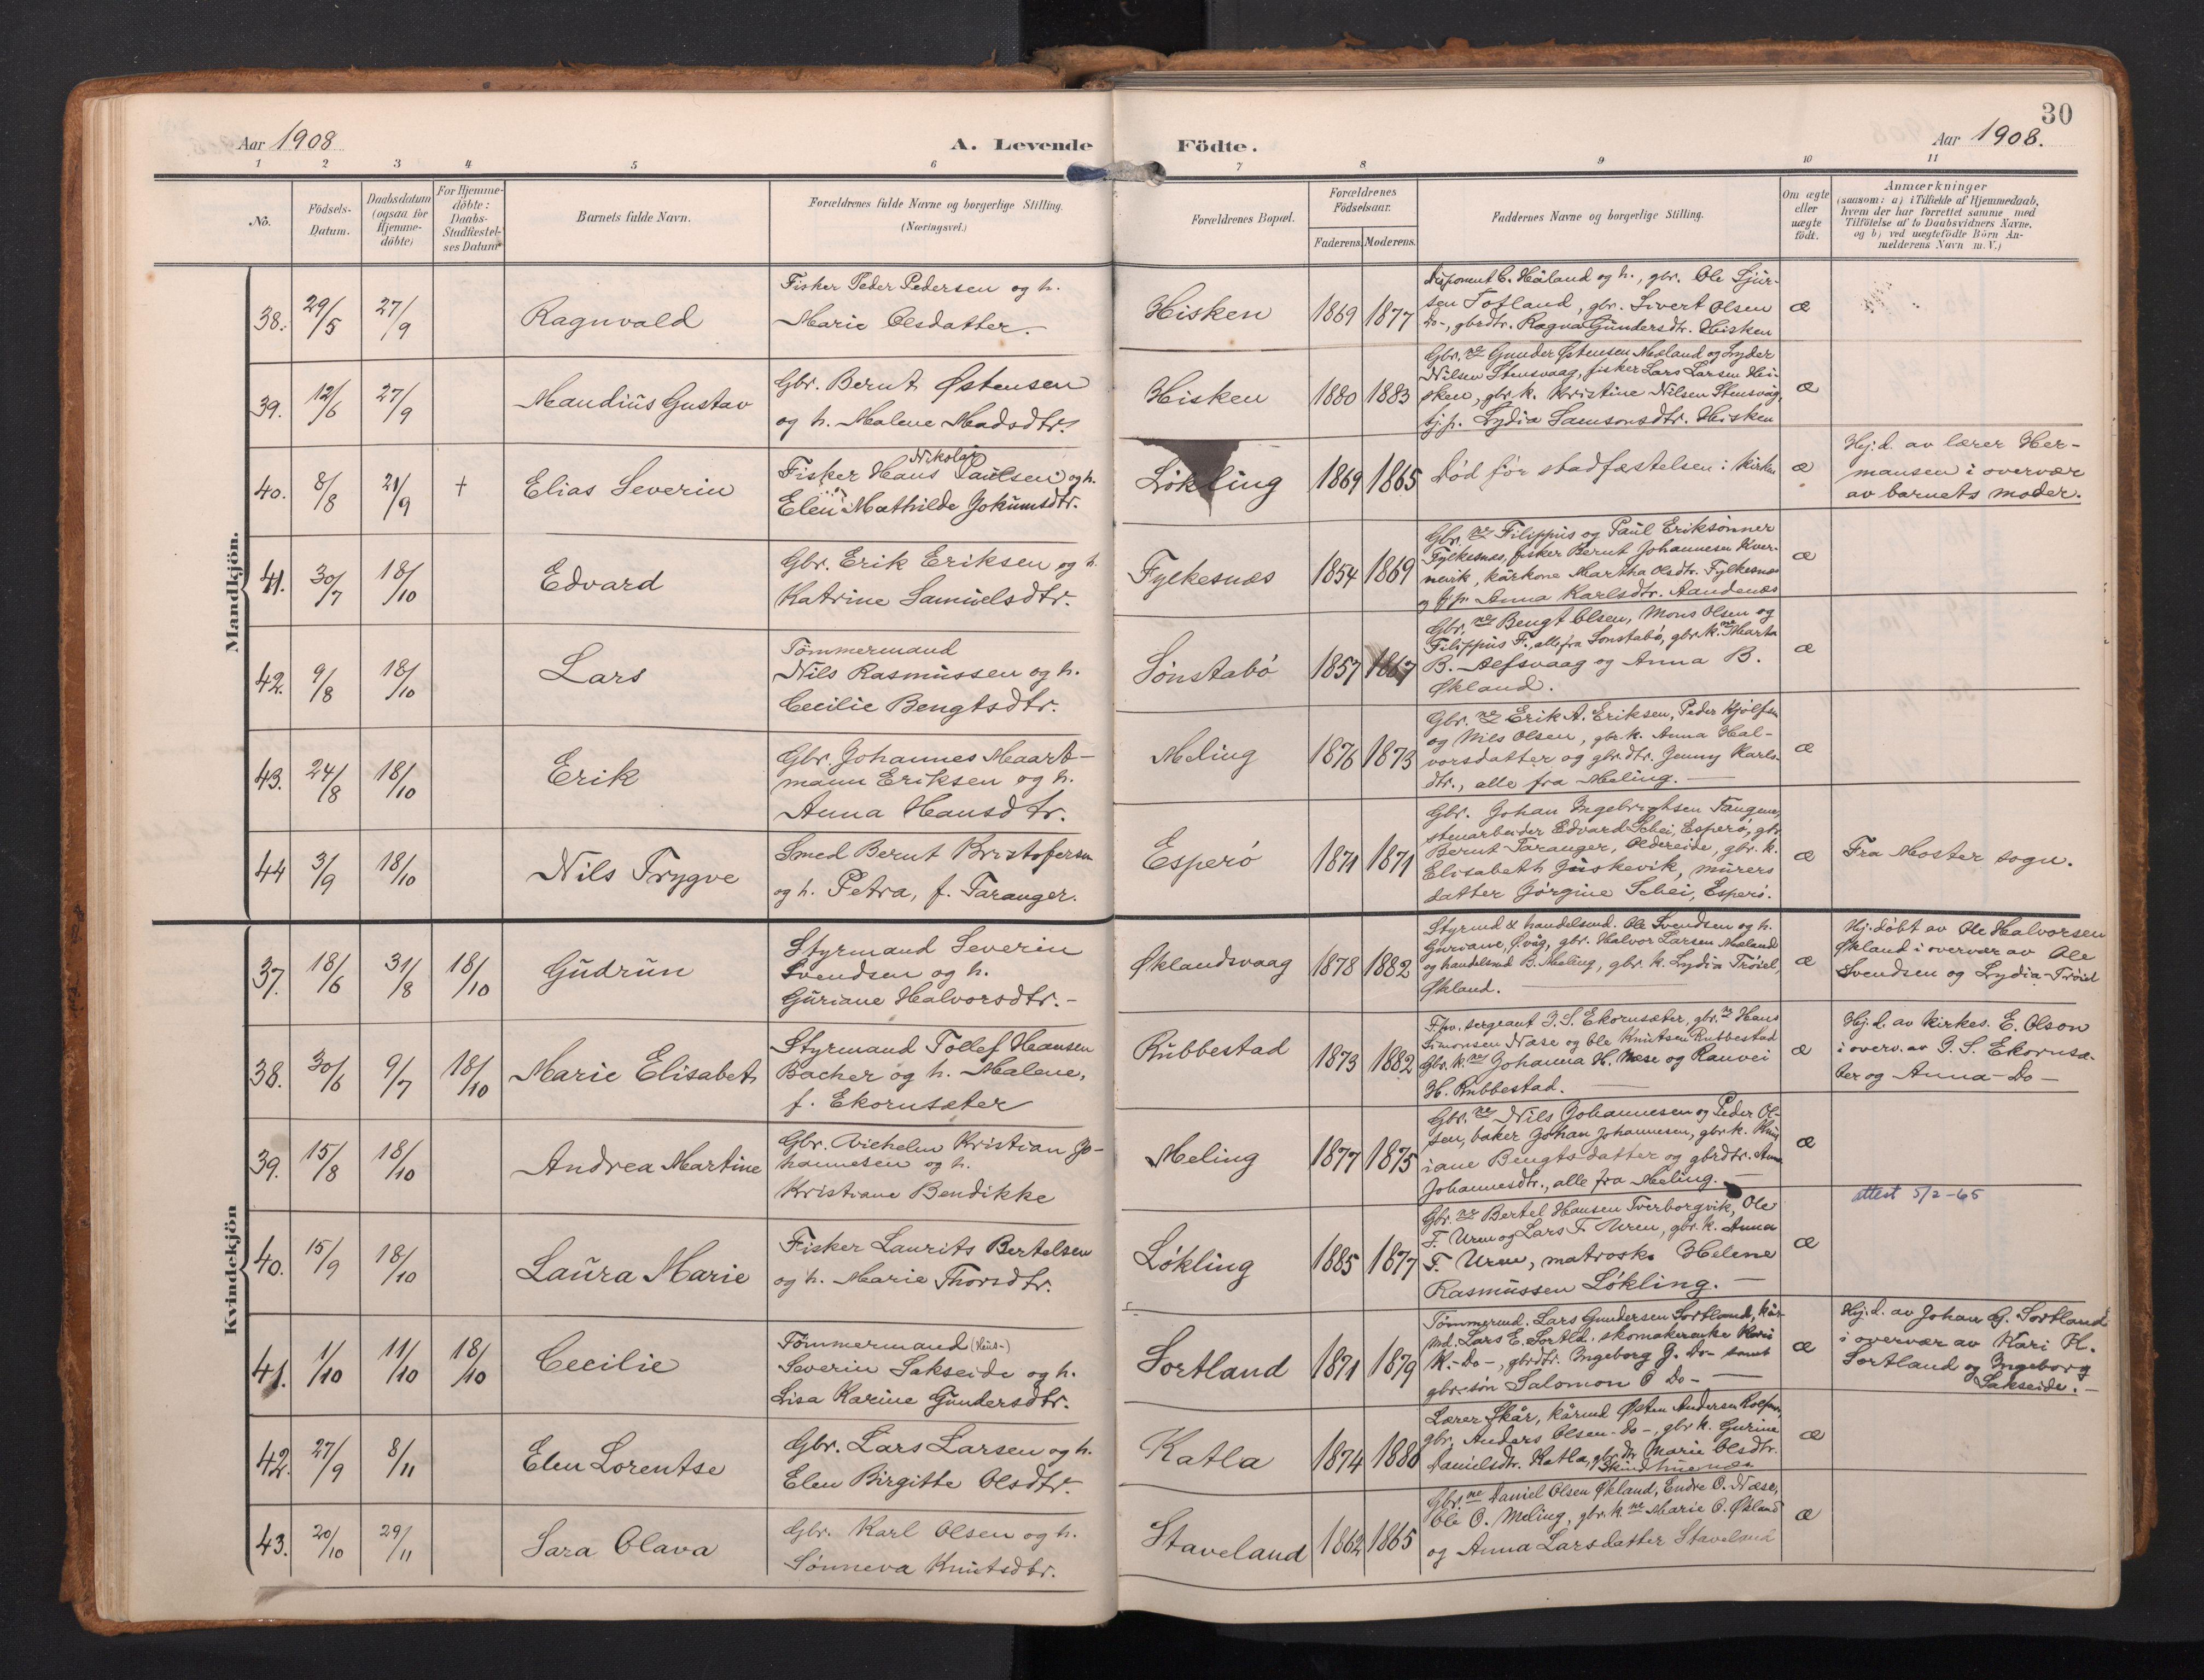 30
Aar 1908
A. Levende
Födte.
Aar 1908.
1 2 3 4 5 6 7 8 9 10 11
No.
Födsels-
Datum.
Daabsdatum
(ogsaa for
Hjemme-
döbte)
For Hjemme-
döbte:
Daabs-
Stadfæstel-
ses Datum
Barnets fulde Navn.
Forældrenes fulde Navne og borgerlige Stilling.
(Næringsvei.)
Forældrenes Bopæl.
Forældrenes
Födselsaar.
Faderens. Moderens.
Faddernes Navne og borgerlige Stilling.
Om ægte
eller
uægte
födt.
Anmærkninger
(saasom: a) i Tilfælde af Hjemmedaab,
hvem der har forrettet samme med
Tilföielse af to Daabsvidners Navne.
og b) ved uægtefödte Börn An-
melderens Navn m. V.)
Mandkjön.
38. 29/5 27/9
Ragnvald
Fisker Peder Pedersen og h.
Marie Olsdatter.
Hisken
1869 1877
Disponent C. Håland og h., gbr. Ole Sjur-
sen Totland, gbr. Sivert Olsen
Do-, gbrdtr. Ragna Gundersdtr. Hisken
æ
39. 12/6 27/9
Mandius Gustav
Gbr. Bernt Østensen
og h. Malene Madsdtr.
Hisken
1880 1883
Gbr.ne Gunder Østensen Mæland og Lyder
Nilsen Stensvaag, fisker Lars Larsen Hi-
sken, gbr. k. Kristine Nilsen Stensvåg,
tj.p. Lydia Samsonsdtr. Hisken
æ
40. 8/8 21/9 +
Elias Severin
Nikolai
Fisker Hans Paulsen og h.
Elen Mathilde Jokumsdtr.
Løkling
1869 1865
Død før stadfæstelsen i kirken
æ
Hj.d. av lærer Her-
mansen i overvær
av barnets moder.
41. 30/7 18/10
Edvard
Gbr. Erik Eriksen og h.
Katrine Samuelsdtr.
Fylkesnæs
1854 1869
Gbr.ne Filippus og Paul Eriksønner
Fylkesnæs, fisker Bernt Johannesen Kver-
nevik, kårkone Martha Olsdtr. Fylkesnæs
og tj.p. Anna Karlsdtr. Aandenæs
æ
42. 9/8 18/10
Lars
Tømmermand
Nils Rasmussen og h.
Cecilie Bengtsdtr.
Sønstabø
1857 1867
Gbr.ne Bengt Olsen, Mons Olsen og
Filippus F., alle fra Sønstabø, gbr. k.ne Marta
B. Alfsvaag og Anna B.
Økland.
æ
43. 24/8 18/10
Erik
Gbr. Johannes Maart-
mann Eriksen og h.
Anna Hansdtr.
Meling
1876 1873
Gbr.ne Erik A. Eriksen, Peder Kjølfsen
og Nils Olsen, gbr. k. Anna Hal-
vorsdatter og gbr.dtr. Jenny Karls-
dtr., alle fra Meling.
æ
44 3/9 18/10
Nils Trygve
Smed Bernt Kristofersen
og h. Petra, f. Taranger.
Esperø
1871 1871
Gbr. Johan Ingebrigtsen
stenarbeider Edvard Schei, Esperø, gbr.
Bernt Taranger, Oldereide, gbr. k.
Elisabeth Juskevik, murers
datter Jørgine Schei, Esperø.
æ
Fra Moster sogn.
Kvindekjön
37. 18/6 31/8 18/10
Gudrun
Styrmand Severin
Svendsen og h.
Guriane Halvorsdtr.-
Øklandsvaag
1878 1882
Styrmd & handelsmd. Ole Svendsen og h.
Guriane, Øvåg, gbr. Halvor Larsen Mæland
og handelsmd B. Meling, gbr. k. Lydia Trøiel,
Økland.
æ
Hj.døbt av Ole Halvorsen
Økland i overvær av Ole
Svendsen og Lydia Trøiel
38. 30/6 9/7 18/10
Marie Elisabet
Styrmand Tollef Hansen
Bacher og h. Malene,
f. Ekornsæter
Rubbestad
1873 1882
F.hv. sergeant I. S. Ekornsæter, gbr.ne Hans
Simonsen Næse og Ole Knutsen Rubbestad
Gbr. k.ne Johanna H. Næse og Ranvei
H. Rubbestad.
æ
Hj.d. av kirkes. E. Olson
i overv. av I. S. Ekornsæ-
ter og Anna - Do -
39. 15/8 18/10
Andrea Martine
Gbr. Vilhelm Kristian Jo-
hannesen og h.
Kristiane Bendikke
Meling
1877 1875
Gbr.ne Nils Johannesen og Peder Ol-
sen, baker Johan Johannesen, gbr. k.
iane Bengtsdatter og gbrdtr. Anna
Johannesdtr., alle fra Meling.
æ
attest 5/2-65
40. 15/9 18/10
Laura Marie
Fisker Laurits Bertelsen
og h. Marie Thorsdtr.
Løkling
1885 1877
Gbr.ne Bertel Hansen Tverborgvik, Ole
T. Uren og Lars T. Uren, gbr. k. Anna
T. Uren, matrosk. Helene
Rasmussen Løkling.
æ
41. 1/10 11/10 18/10
Cecilie
Tømmermand (Hus-)
Severin Sakseide og h.
Lisa Karine Gundersdtr.
Sortland
1871 1879
Tømmermd. Lars Gundersen Sortland, kår-
md. Lars E. Sortld. skomakerenke Kari
K. - Do -, gbrdtr. Ingeborg G. Do- samt
gbr.søn Salomon O Do-
æ
Hj.d. av Johan G. Sortland
i overvær av Kari K.
Sortland og Ingeborg
Sakseide.-
42. 27/9 8/11
Elen Lorentse
Gbr. Lars Larsen og h.
Elen Birgitte Olsdtr.
Katla
1874 1880
Lærer Skår, kårmd Østen Andersen
gbr. Anders Olsen - Do -, gbr. k. Gurine
Danielsdtr. Katla, gbr.dtr. Marie Olsdtr.
æ
43. 20/10 29/11
Sara Olava
Gbr. Karl Olsen og h.
Sønneva Knutsdtr.
Staveland
1862 1865
Gbr.ne Daniel Olsen Økland, Endre O. Næse,
Ole O. Meling, gbr. k.ne Marie O. Økland
og Anna Larsdatter Staveland
æ